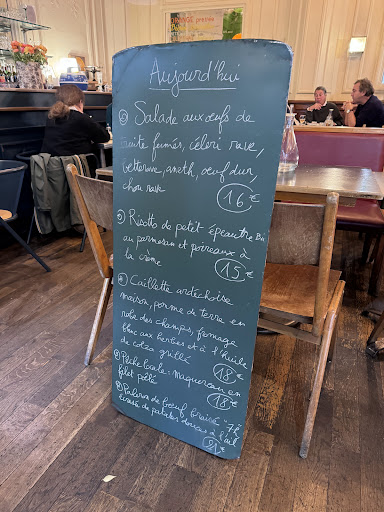 Aujourd'hui
Salade aux œufs de
truite fumés, céleri rave,
betterave, aneth, œuf dur,
chou rave
16€
Risotto de petit épeautre Bio
au parmesan et poireaux à
la crème
15€
Caillette ardéchoise
maison, pomme de terre en
robe des champs, fromage
blanc aux herbes et à l'huile
de colza grillé
18€
Pêche locale : Maquereau en
filet poêlé
18€
Paleron de bœuf braisé
de patates douces à l'ail
21€